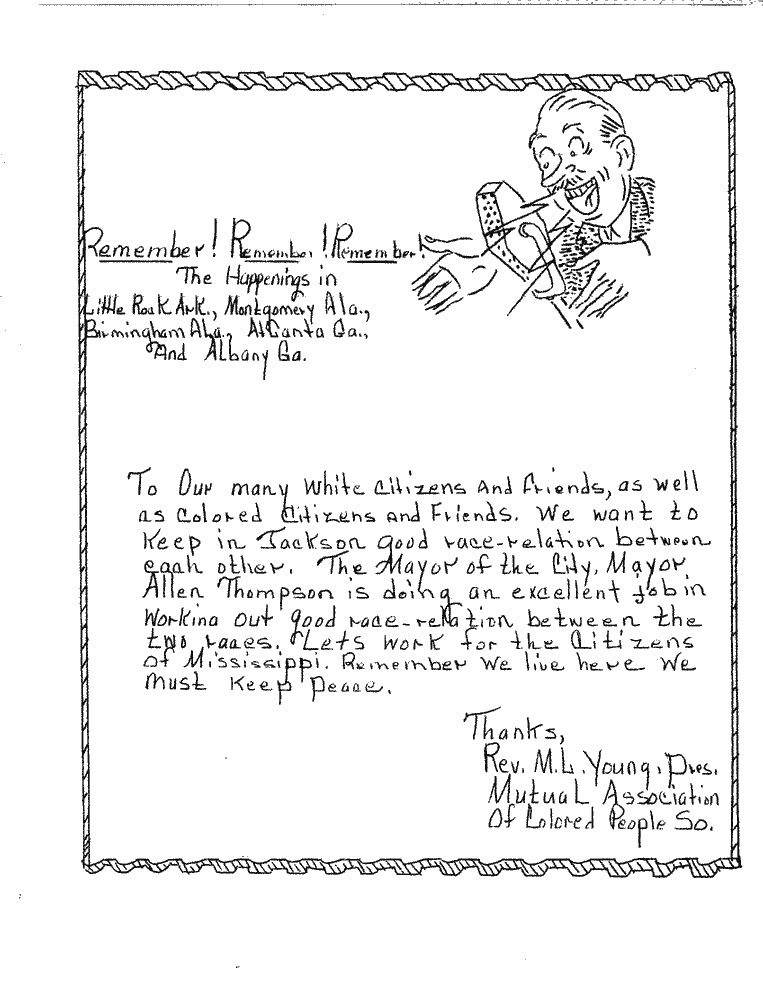 Remember! Remember! Remember!
The Happenings in
Little Rock Ark., Montgomery Ala.,
Birmingham Ala., Atlanta Ga.,
And Albany Ga.
To Our many White Citizens And Friends, as well
as Colored Citizens and Friends. We want to
Keep in Jackson good race-relation between
each other. The Mayor of the City, Mayor
Allen Thompson is doing an excellent job in
Working out good race-relation between the
two races. Lets work for the Citizens
Of Mississippi. Remember We live here We
Must Keep peace.
Thanks,
Rev. M.L. Young, Pres.
Mutual Association
Of Colored People So.